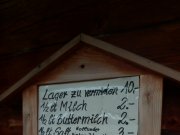 Lager zu vermieten 10.-
1/2 lt Milch 2.-
1/2 lt Buttermilch 2.-
1/2 lt Saft 3.-